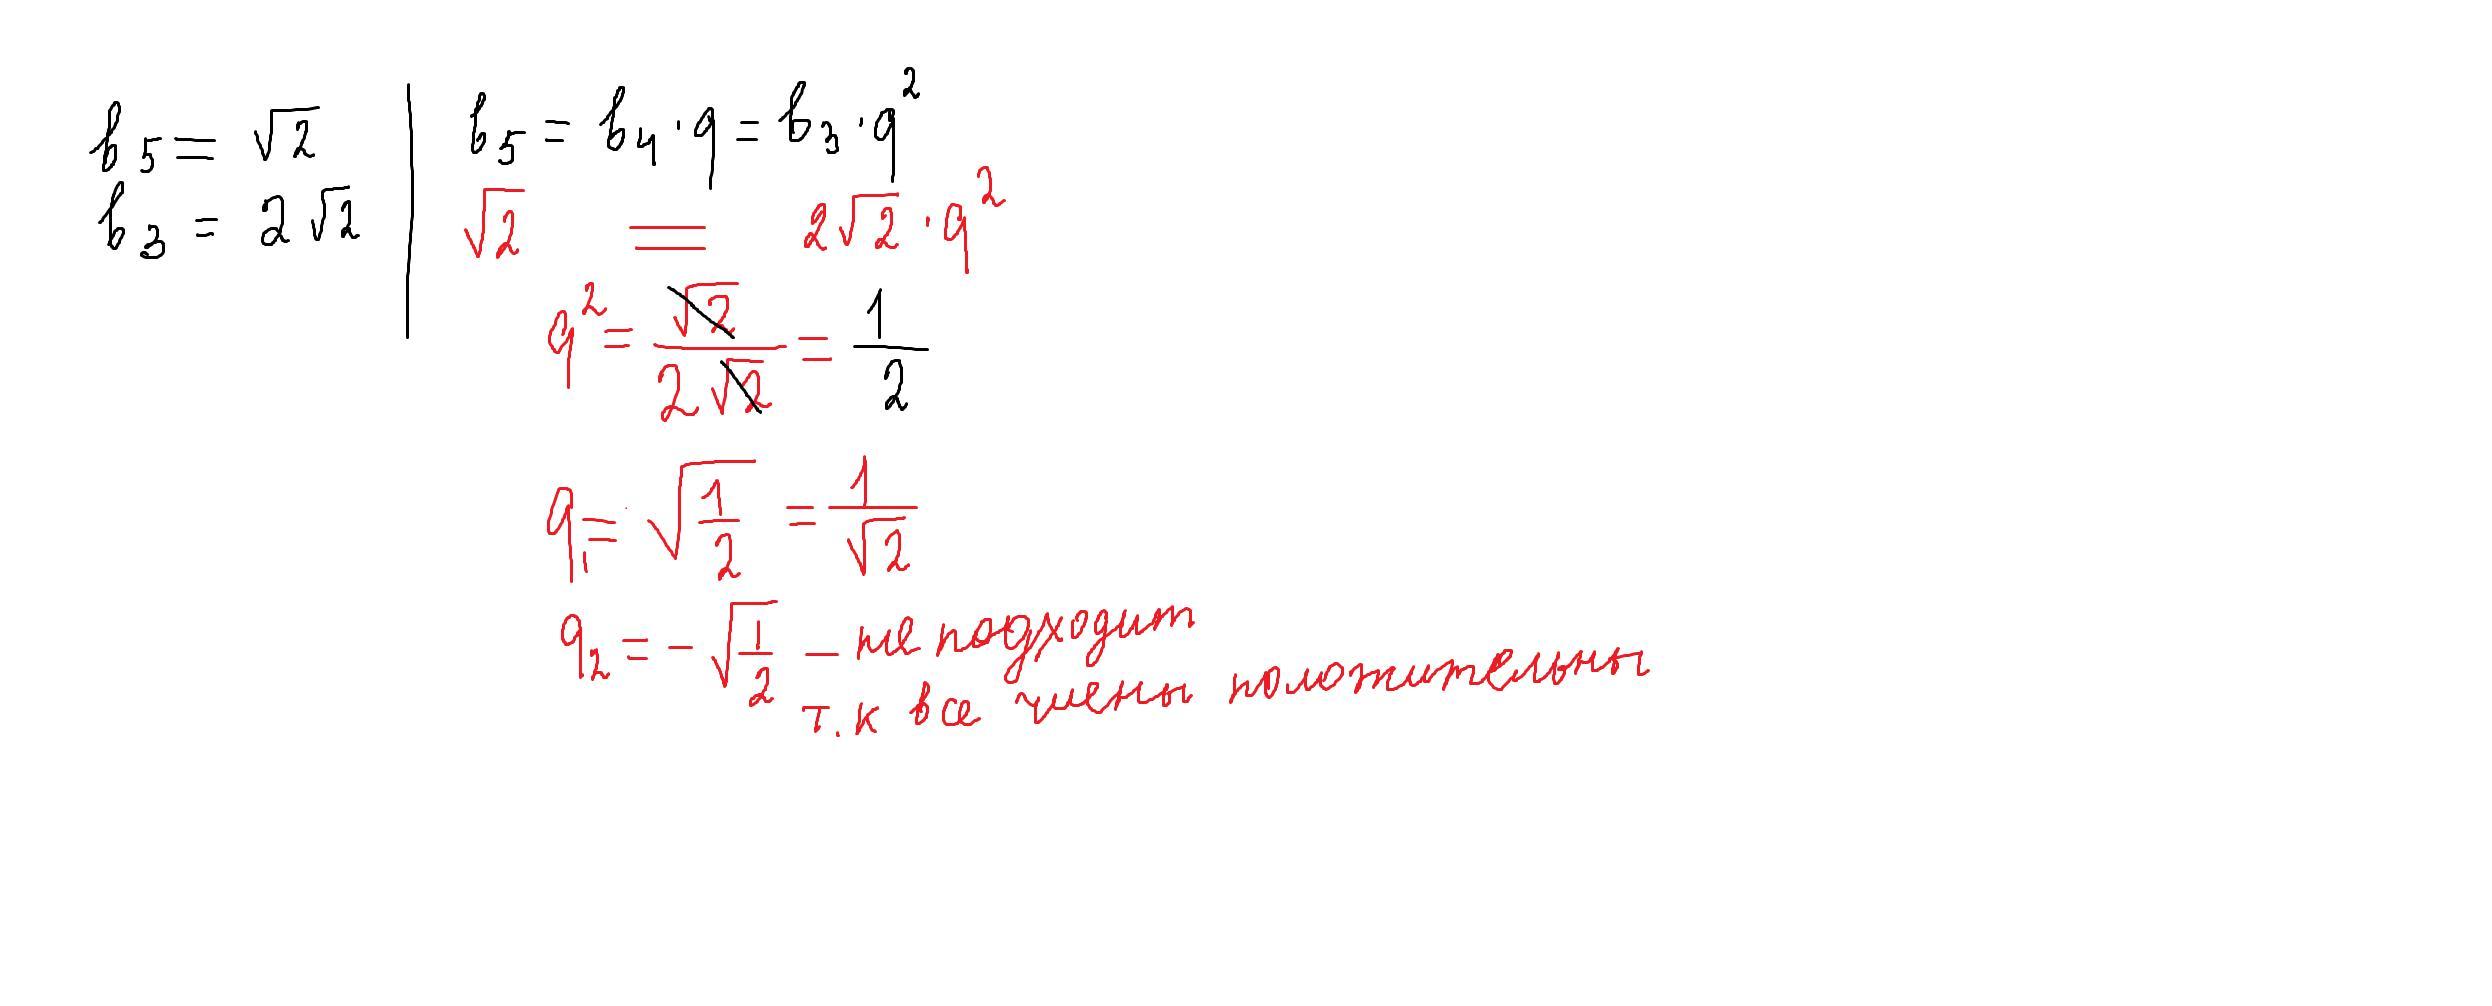 b₅ = √2
b₃ = 2√2
b₅ = b₄ · q = b₃ · q²
√2 = 2√2 · q²
q² = √2 / 2√2 = 1/2
q₁ = √(1/2) = 1/√2
q₂ = - √(1/2) – не подходит
т.к все члены положительны